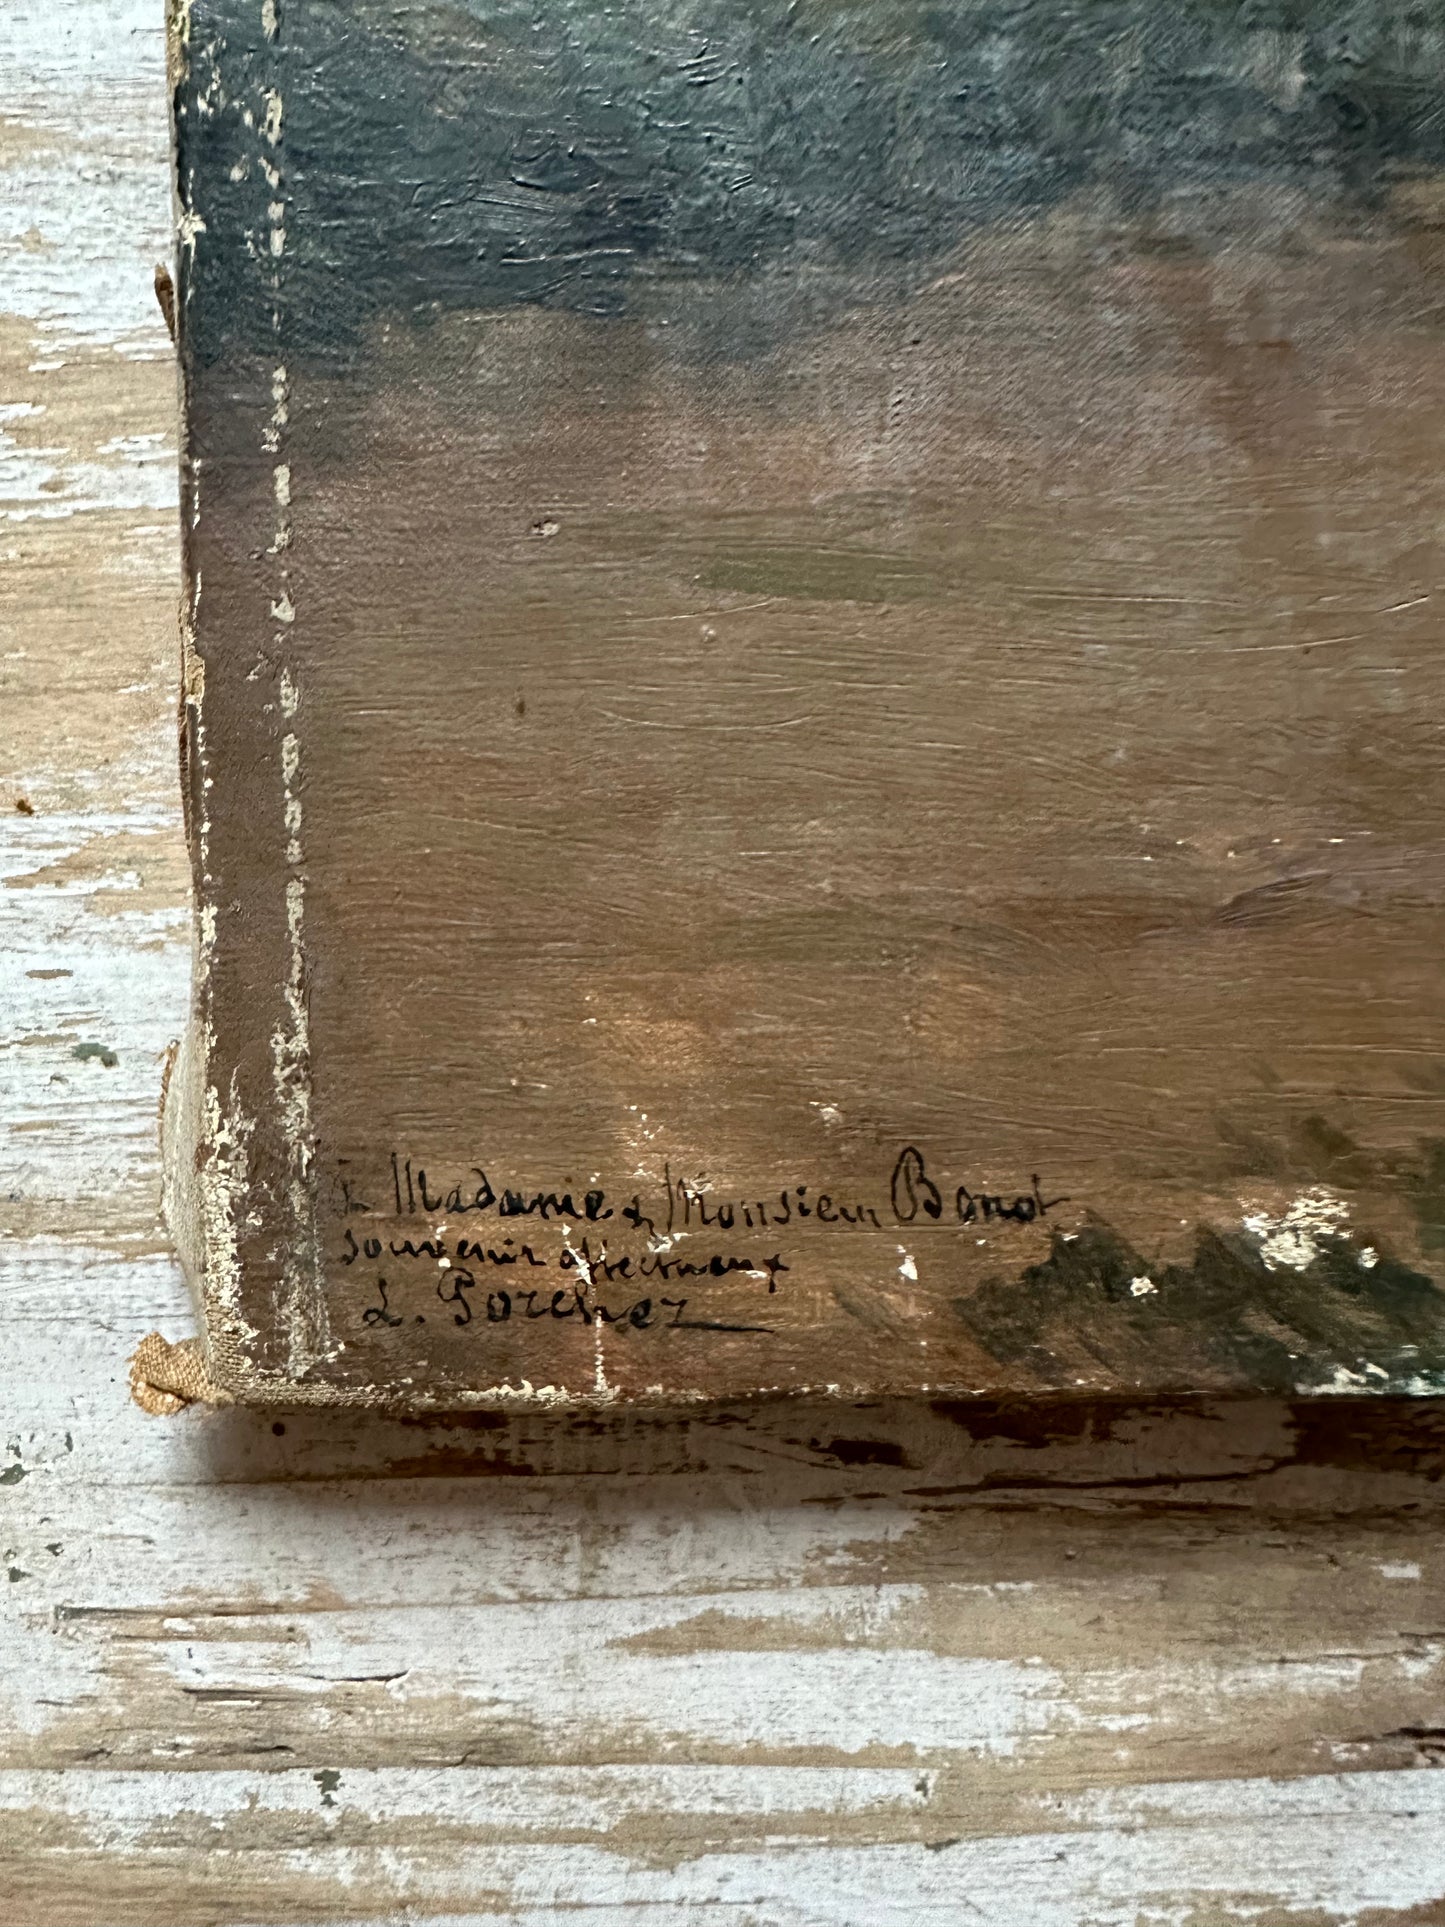 à Madame & Monsieur Bonot
souvenir affectueux
L. Porcher